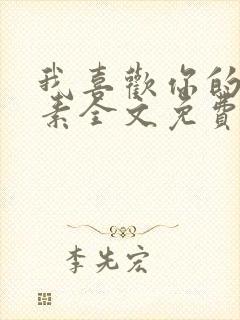 我喜歡你的
素全文免費
李先宏